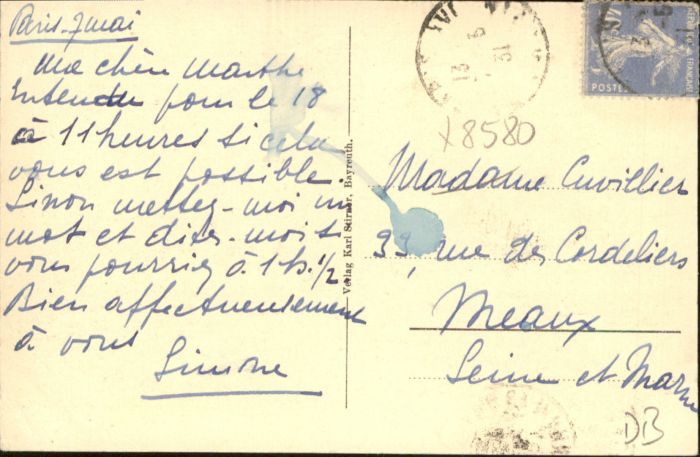 Paris - 7 mai
Ma chère Marthe
Entendu pour le 18
à 11 heures si cela
vous est possible.
Sinon mettez-moi un
mot et dites-moi si
vous pourriez à 1 h. 1/2
Bien affectueusement
à vous
Simone
Verlag Karl Stirner, Bayreuth.
13 5
31
POSTES
8580
Madame Cuvillier
33, rue des Cordeliers
Meaux
Seine et Marne
DB